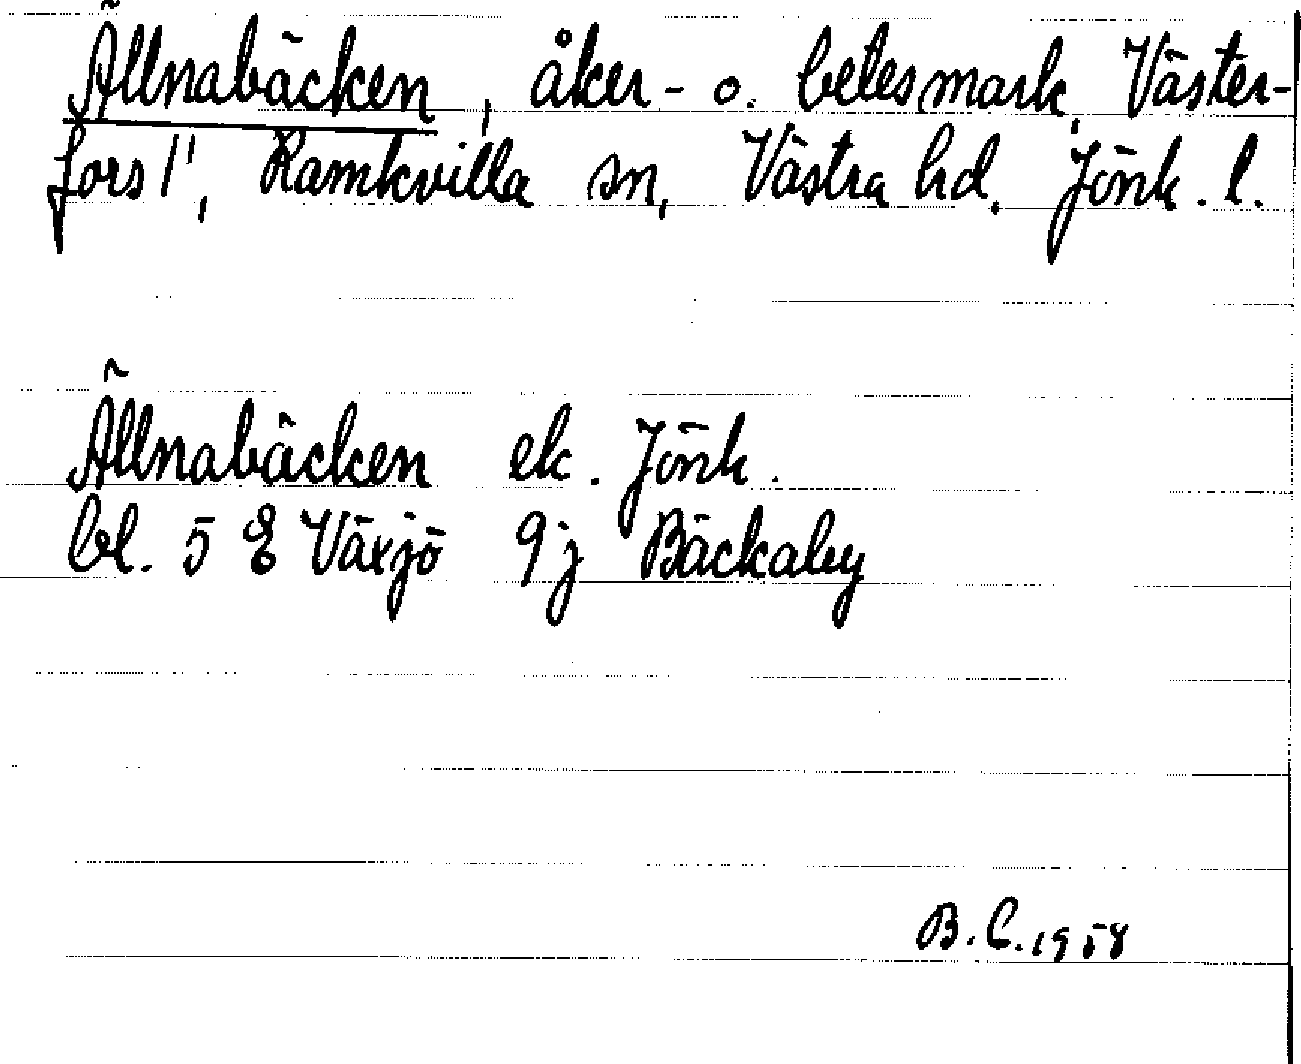 Ällnabäcken, åker- o. betesmark, Väster-
fors 1¹, Ramkvilla sn, Västra hd. Jönk. l.
Ällnabäcken ek. Jönk.
bl. 5 E Växjö 9j Bäckaby
B.C. 1958